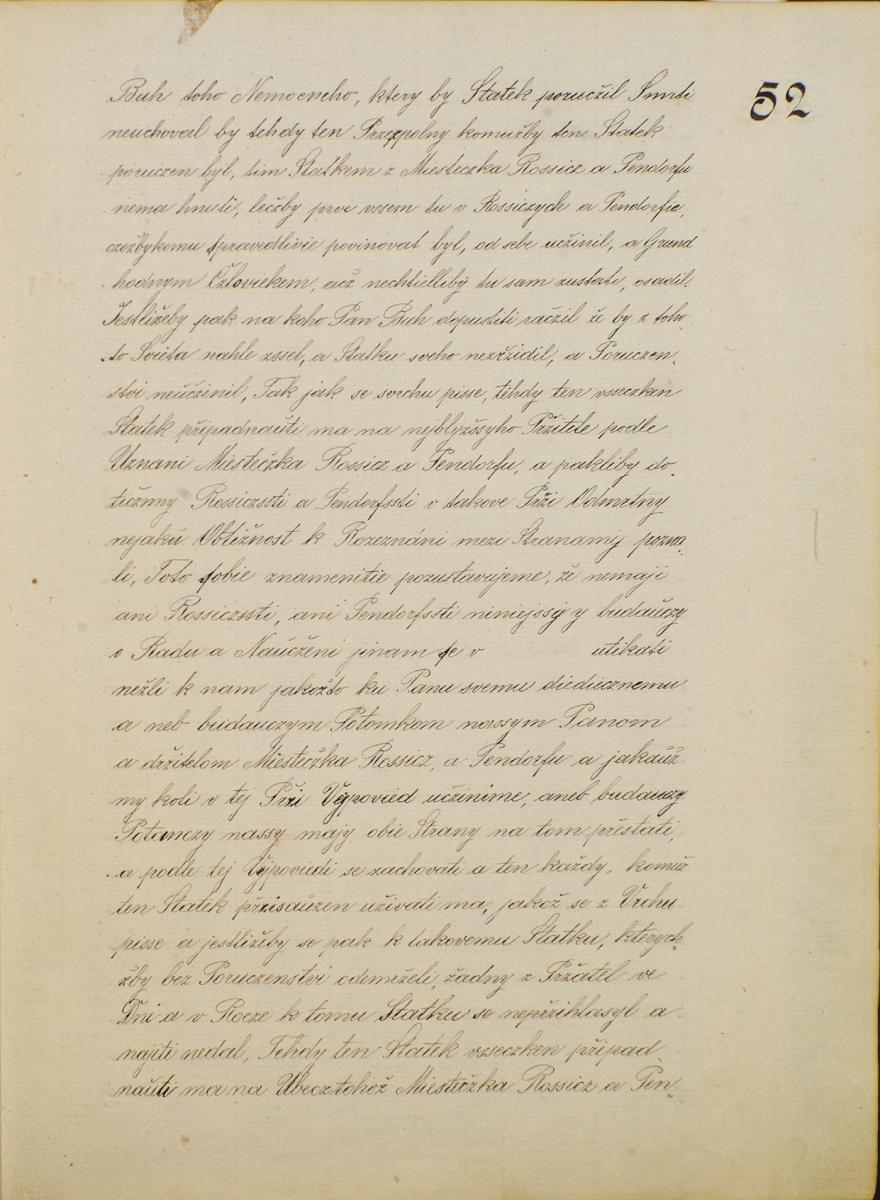 52
Buh toho Nemocneho, ktery by Statek poručžil Smrti
neuchoval by tehdy ten Przezpolny komužby ten Statek
poruczen býl, tim Statkem z Miesteczka Rossicz a Pendorfu
nema hnuti, lečžby prve vssem tu v Rossiczych a Pendorfie,
czožbykomu spravedlivie povinovat byl, od sebe učžinil, a Grund
hodnym Cžloviekem, acž nechtielliby tu sam zustati, osadil.
Jestližeby pak na koho Pan Buh dopustiti račžil že by z toho
to Svieta nahle zssel, a Statku sveho nezržidil, a Poruczen„
stvi neučžinil, Tak jak se svrchu pisse, tehdy ten vsseczken
Statek připadnaúti ma na nejblyžssyho Pržitele podle
Uznani Miestečžka Rossicz a Pendorfu, a pakliby do„
tučznny Rossiczssti a Pendorfssti v takove Prži Odmrtny
nejakú Obtižnost k Rozeznáni mezi Stranamij pozna„
li, Toto sobie znamenitie pozustavujeme, že nemaji
ani Rossiczssti, ani Pendorfssti niniejssij y budaúczy
o Radu a Naúčženi jinam se v utikati
nežli k nam jakožto ku Panu svemu diedicznemu
a neb budauczym Potomkom nassym Panom
a držitelom Miestečžka Rossicz, a Pendorfu a jakaúž
my koli v tej Prži Výpovied učžinime, aneb budauczy
Potomczy nassy majy obie Strany na tom přestati,
a podle tej Výpoviedi se zachovati a ten každy, komuž
ten Statek přisaúzen užívati ma, jakož se z Vrchu
pisse a jestližeby se pak k takovemu Statku, kterých„
žby bez Poruczenstvi odemrželi, žadny z Pržatel ve
Dni a v Rocze k tomu Statku se nepřžihlasyl a
najiti nedal, Tehdy ten Statek vsseczken připad„
naúti ma na Ubecz tohož Miestečžka Rossicz a Pen„